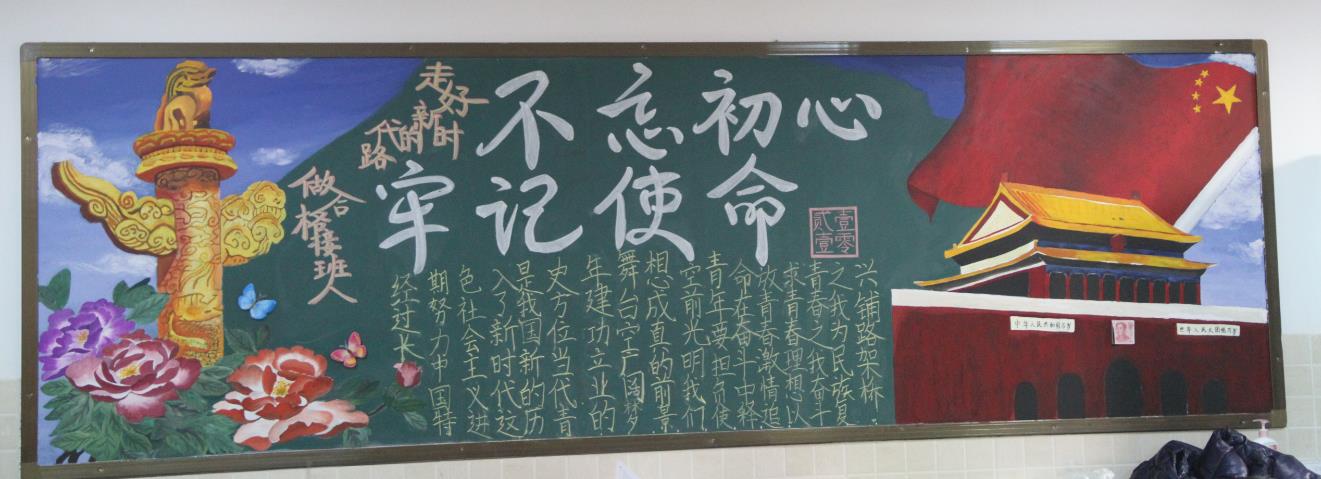 走好
新时
代的
路
做合
格接班人
不忘初心
牢记使命
壹零
贰壹
经过长
期努力中国特
色社会主义进
入了新时代这
是我国新的历
史方位当代青
年建功立业的
舞台空广阔梦
想成真的前景
空前光明我们
青年要担负使
命在奋斗中释
放青春激情追
求青春理想以
青春之我奋斗
之我为民族复
兴铺路架桥
中华人民共和国万岁
世界人民大团结万岁